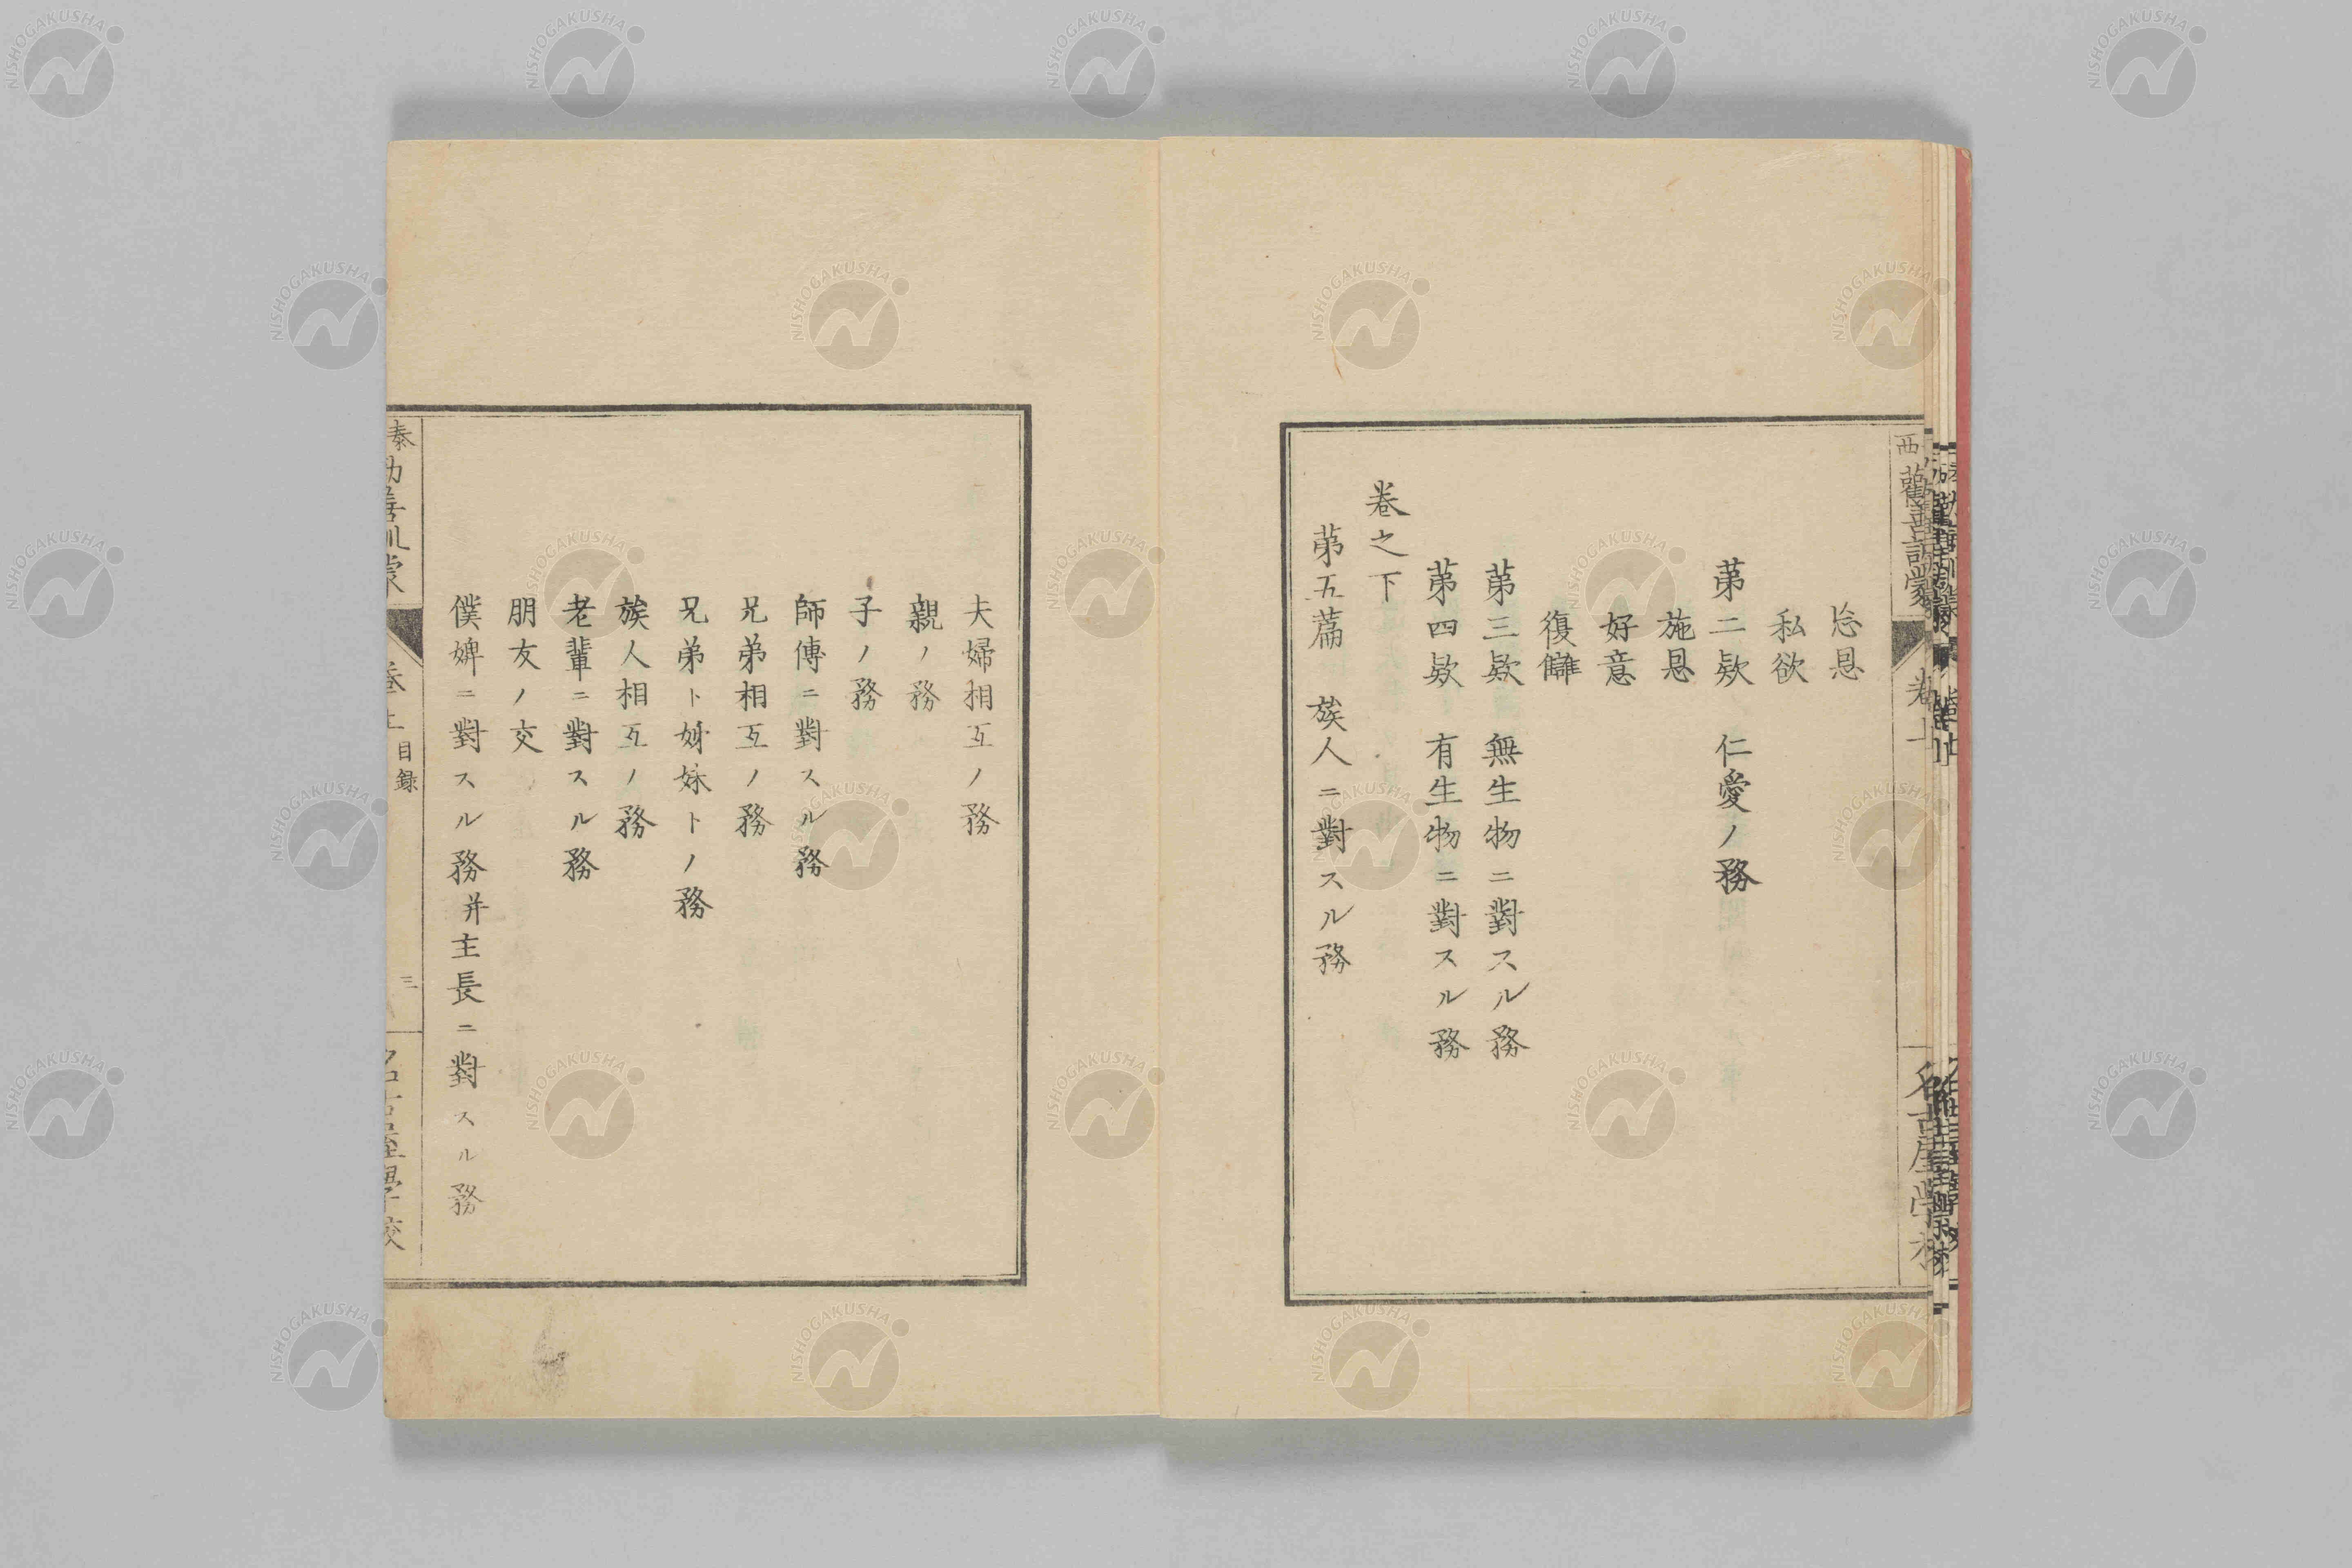 忘恩
私欲
第二欵 仁愛ノ務
施恩
好意
復讎
第三欵 無生物ニ對スル務
第四欵 有生物ニ對スル務
卷之下
第五篇 族人ニ對スル務
夫婦相互ノ務
親ノ務
子ノ務
師傅ニ對スル務
兄弟相互ノ務
兄弟ト姉妹トノ務
族人相互ノ務
老輩ニ對スル務
朋友ノ交
僕婢ニ對スル務并主長ニ對スル務
泰 勸善訓蒙 卷上 目録 三 名古屋學校
NISHOGAKUSHA